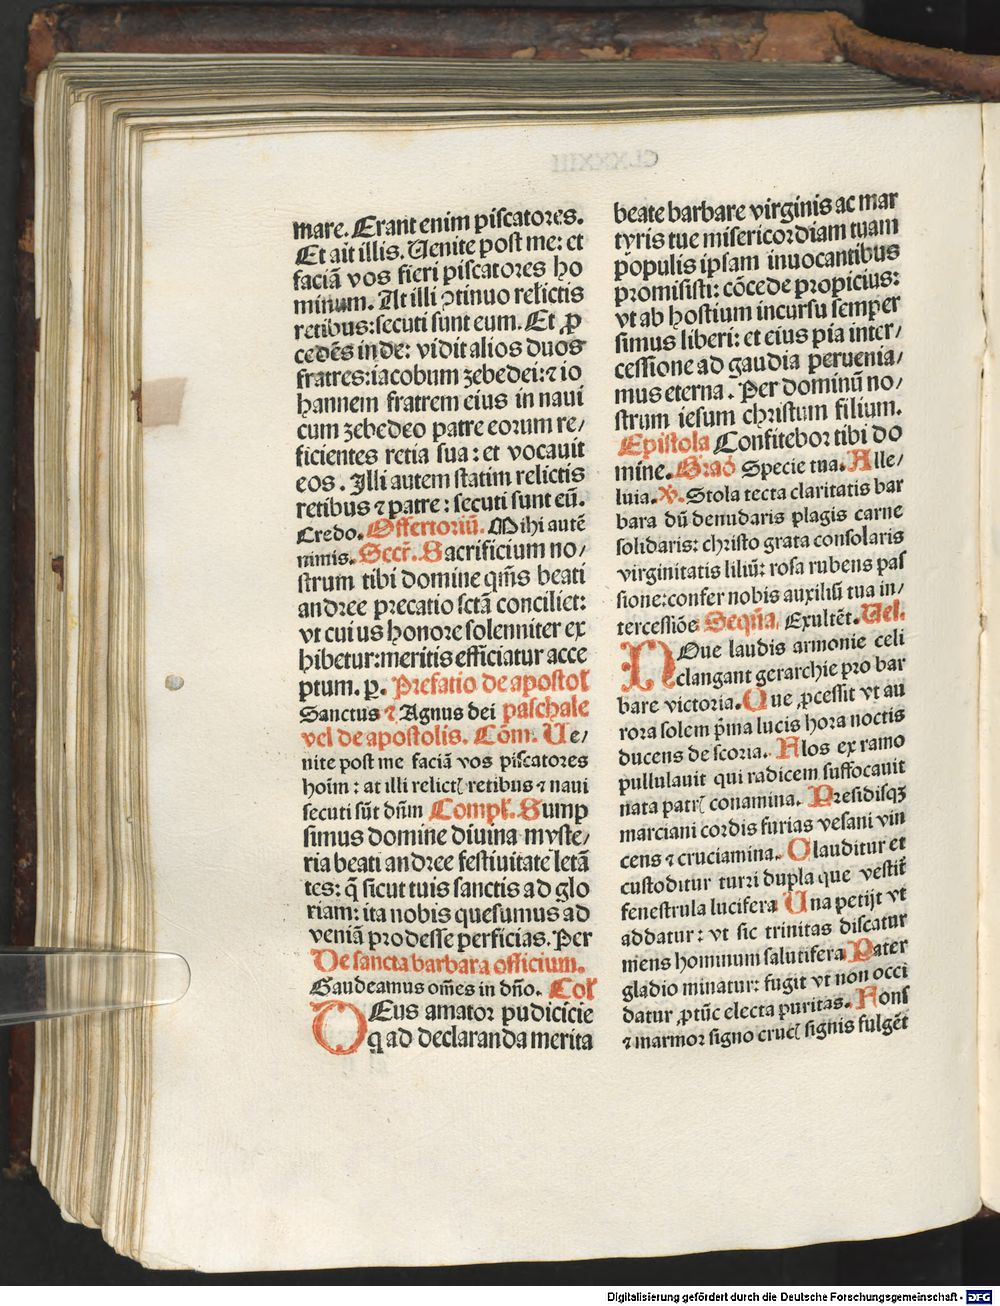 mare. Erant enim piscatores.
Et ait illis. Uenite post me: et
faciā vos fieri piscatores ho
minum. At illi ꝯtinuo relictis
retibus: secuti sunt eum. Et ꝓ
cedēs inde: vidit alios duos
fratres: iacobum zebedei: ⁊ io
hannem fratrem eius in naui
cum zebedeo patre eorum re/
ficientes retia sua: et vocauit
eos. Illi autem statim relictis
retibus ⁊ patre: secuti sunt eū.
Credo. Offertoriū. Mihi autē
nimis. Secr̄. Sacrificium no/
strum tibi domine qm̄s beati
andree precatio sctā conciliet:
vt cuius honore solenniter ex
hibetur: meritis efficiatur acce
ptum. p. Prefatio de apostoł
Sanctus ⁊ Agnus dei paschale
vel de apostolis. Cōm. Ue/
nite post me faciā vos piscatores
hoīm: at illi relictꝭ retibus ⁊ naui
secuti sūt dn̄m Compł. Sump
simus domine diuina myste/
ria beati andree festiuitate letā
tes: q̄ sicut tuis sanctis ad glo
riam: ita nobis quesumus ad
veniā prodesse perficias. Per
De sancta barbara officium.
Gaudeamus om̄es in dn̄o. Coł
DEus amator pudicicie
q ad declaranda merita
beate barbare virginis ac mar
tyris tue misericordiam tuam
populis ipsam inuocantibus
promisisti: cōcede propicius:
vt ab hostium incursu semper
simus liberi: et eius pia inter/
cessione ad gaudia peruenia/
mus eterna. Per dominū no/
strum iesum christum filium.
Epistola Confitebor tibi do
mine. Grad̄ Specie tua. Alle/
luia. ℣. Stola tecta claritatis bar
bara dū denudaris plagis carne
solidaris: christo grata consolaris
virginitatis liliū: rosa rubens pas
sione: confer nobis auxiliū tua in/
tercessiōe Seqn̄a. Exultēt. Uel.
NOue laudis armonie celi
clangant gerarchie pro bar
bare victoria. Que ꝓcessit vt au
rora solem p̄ma lucis hora noctis
ducens de scoria. Flos ex ramo
pullulauit qui radicem suffocauit
nata patrꝭ conamina. Presidisqꝫ
marciani cordis furias vesani vin
cens ⁊ cruciamina. Clauditur et
custoditur turri dupla que vestit̄
fenestrula lucifera Una petijt vt
addatur: vt sic trinitas discatur
mens hominum salutifera Pater
gladio minatur: fugit vt non occi
datur ꝓtūc electa puritas. Fons
⁊ marmor signo crucꝭ signis fulgēt
CLXXXIII
Digitalisierung gefördert durch die Deutsche Forschungsgemeinschaft - DFG